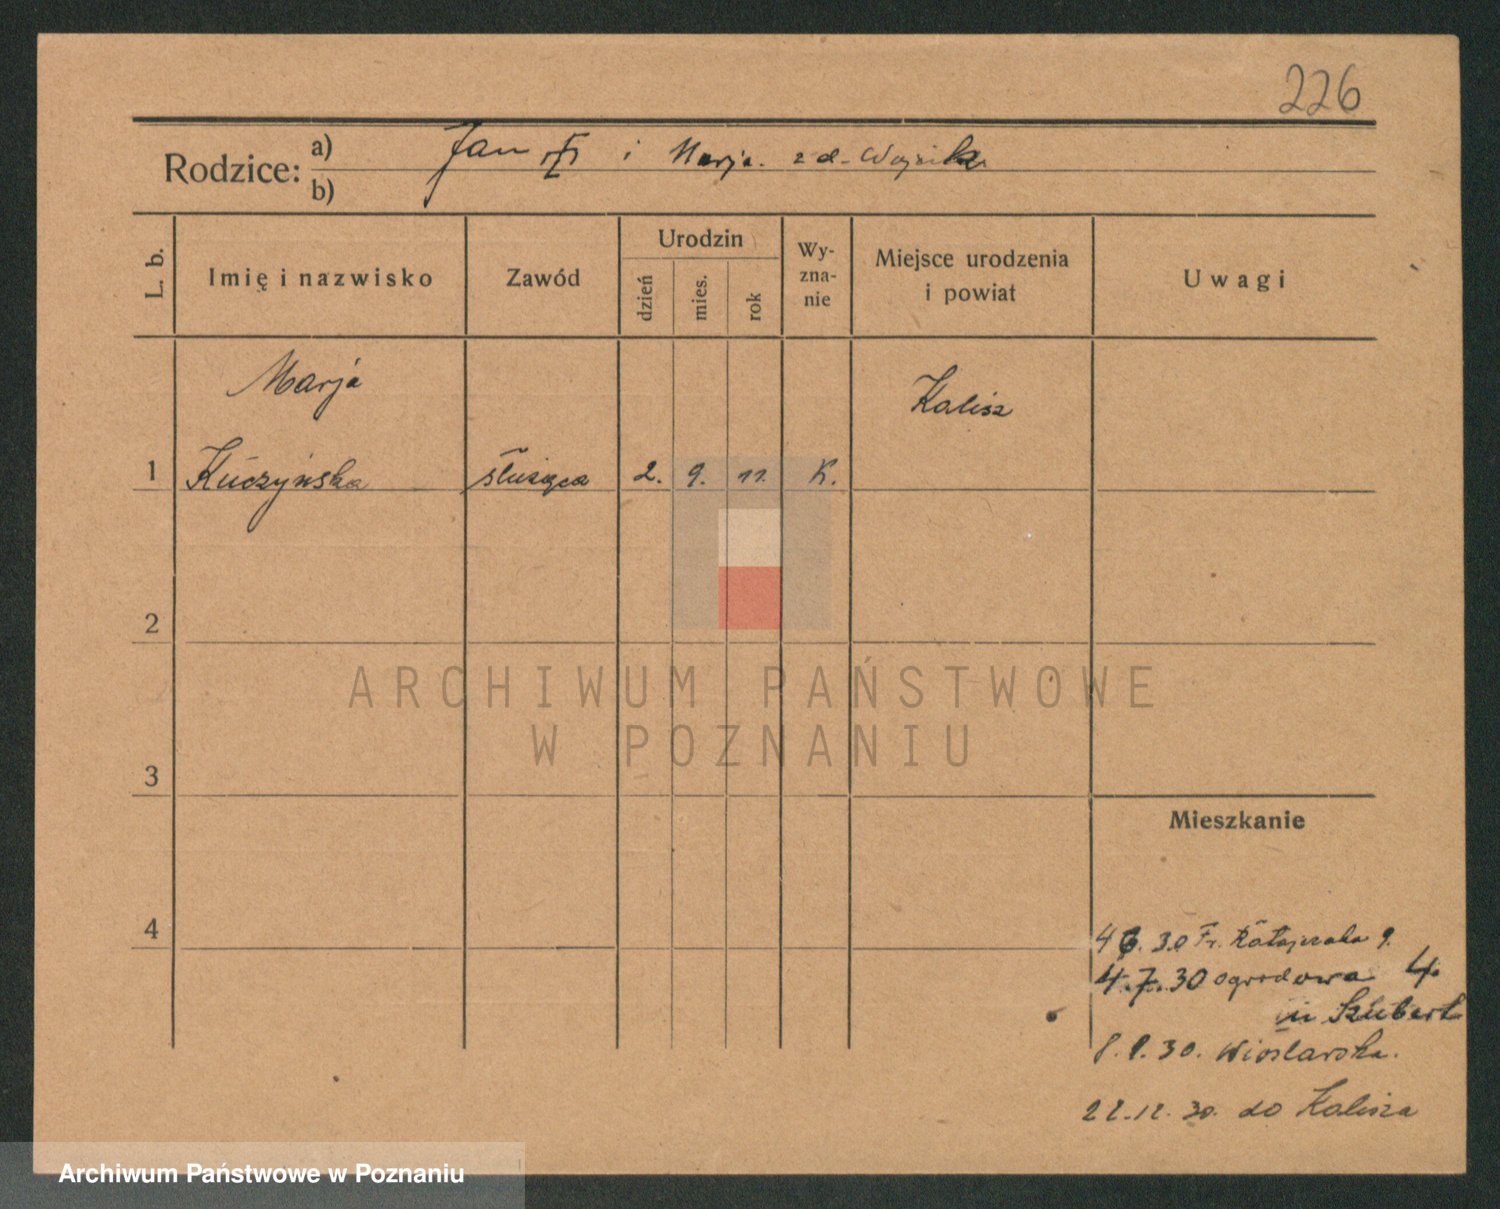 226
Rodzice: a) Jan i Marja. z d. Wojcik
b)
L. b.
Imię i nazwisko
Zawód
Urodzin
dzień
mies.
rok
Wy-
zna-
nie
Miejsce urodzenia
i powiat
Uwagi
Marja
Kalisz
1 Kuczyńska służąca 2. 9. 11. K.
2
ARCHIWUM PAŃSTWOWE
W POZNANIU
3
Mieszkanie
4
4 6. 30 Fr. Ratajczaka 9.
4.7.30 ogrodowa 4.
u Szubert
8.8.30. Wioślarska.
22.12.30. do Kalisza
Archiwum Państwowe w Poznaniu